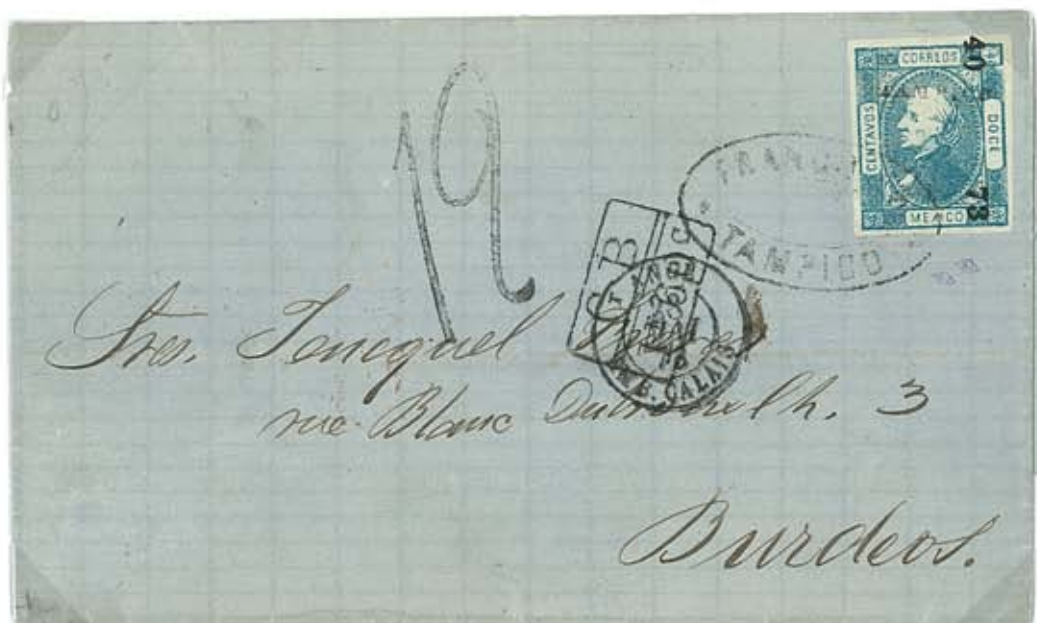 12
40
CORREOS
CENTAVOS
DOCE
MEXICO
73
FRANCO
TAMPICO
G B
ANGL.
AMB. CALAIS
Sres. Jencquel
rue Blanc Dutrouilh. 3
Burdeos.